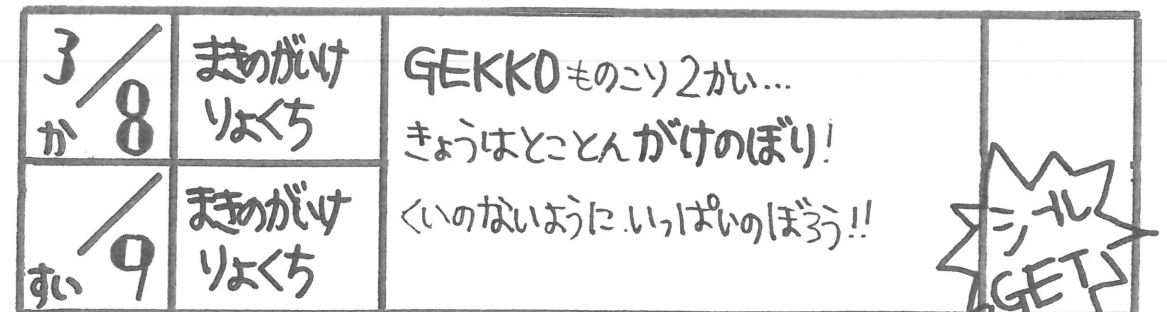 3/8
か
まきのがいけ
りょくち
GEKKOものこり2かい…
きょうはとことんがけのぼり!
くいのないように.いっぱいのぼろう!!
/9
すい
まきのがいけ
りょくち
シール
GET